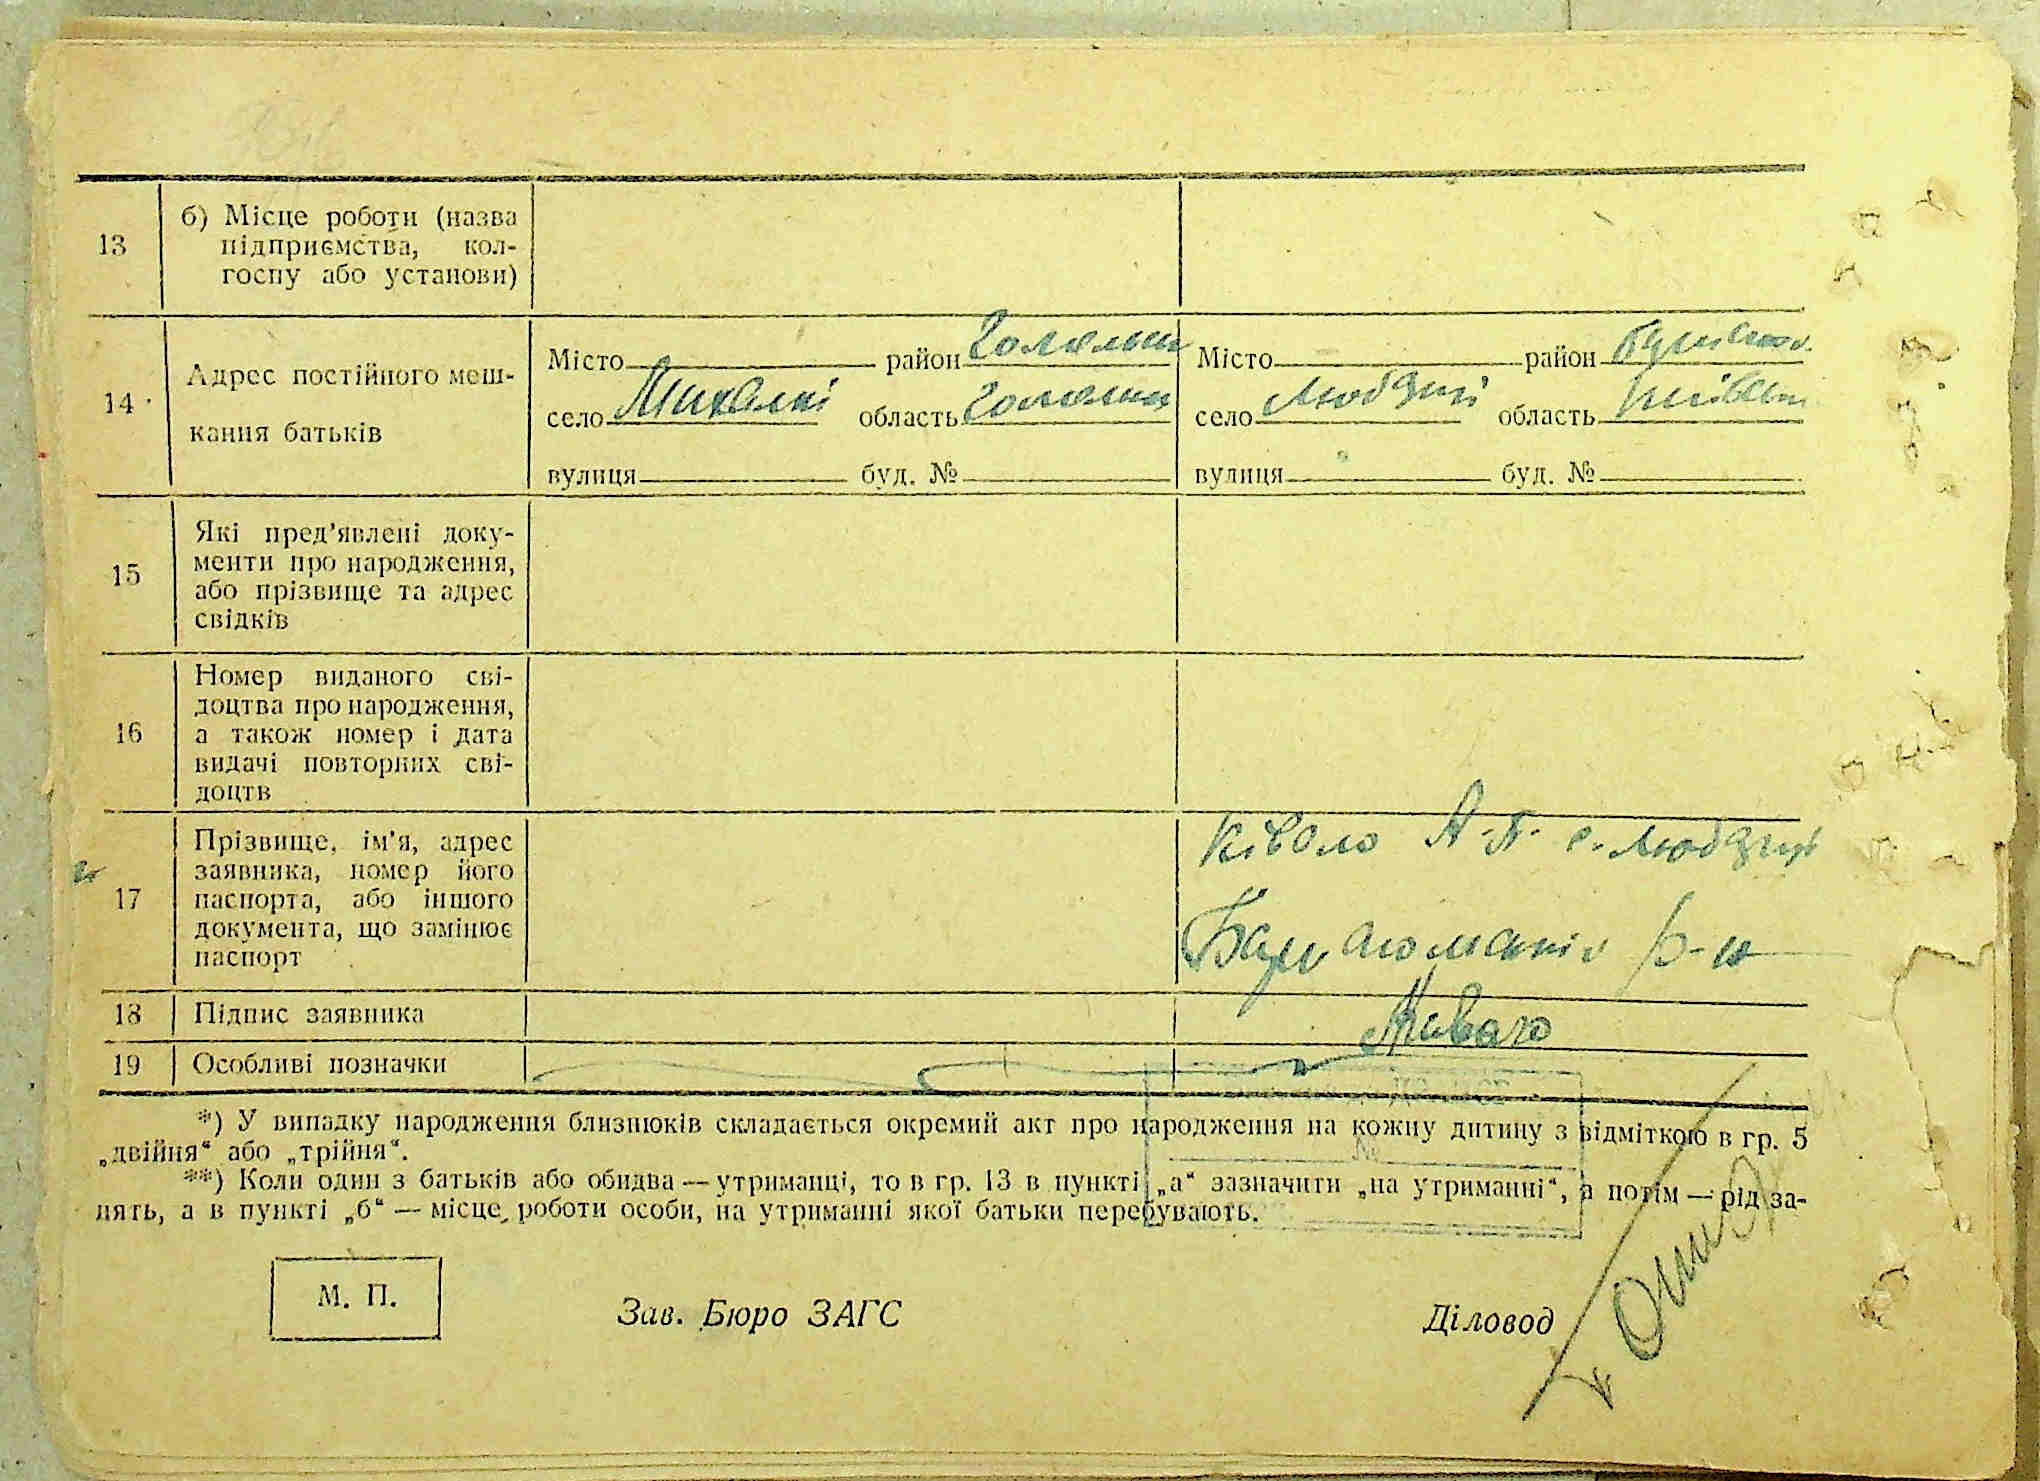 13
б) Місце роботи (назва
підприємства, кол-
госпу або установи)
14
Адрес постійного меш-
кання батьків
Місто район
село Михалкі область
вулиця буд. №
Місто район
село область
вулиця буд. №
15
Які пред'явлені доку-
менти про народження,
або прізвище та адрес
свідків
16
Номер виданого сві-
доцтва про народження,
а також номер і дата
видачі повторних сві-
доцтв
17
Прізвище, ім'я, адрес
заявника, номер його
паспорта, або іншого
документа, що замінює
паспорт
А. П. с.
р-н
18
Підпис заявника
19
Особливі позначки
*) У випадку народження близнюків складається окремий акт про народження на кожну дитину з відміткою в гр. 5
„двійня“ або „трійня“.
**) Коли один з батьків або обидва — утриманці, то в гр. 13 в пункті „а“ зазначити „на утриманні“, а потім — рід за-
нять, а в пункті „б“ — місце роботи особи, на утриманні якої батьки перебувають.
М. П.
Зав. Бюро ЗАГС
Діловод